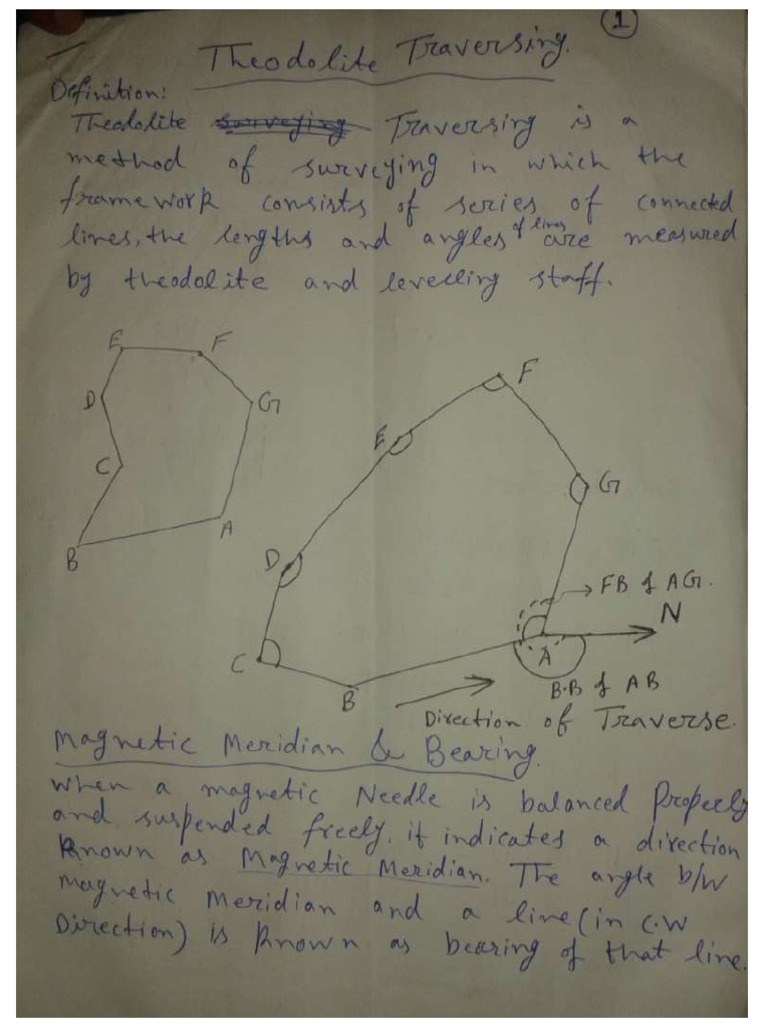 1
Theodolite Traversing.
Definition:
Theodolite surveying Traversing is a
method of surveying in which the
framework consists of series of connected
lines, the lengths and angles of lines are measured
by theodolite and levelling staff.
E F
D G
C
A
B
F
E
G
D
FB of AG.
N
A
C
B
B.B of AB
Direction of Traverse.
Magnetic Meridian & Bearing.
When a magnetic Needle is balanced Properly
and suspended freely, it indicates a direction
Known as Magnetic Meridian. The angle b/w
Magnetic Meridian and a line (in C.W
Direction) is Known as bearing of that line.